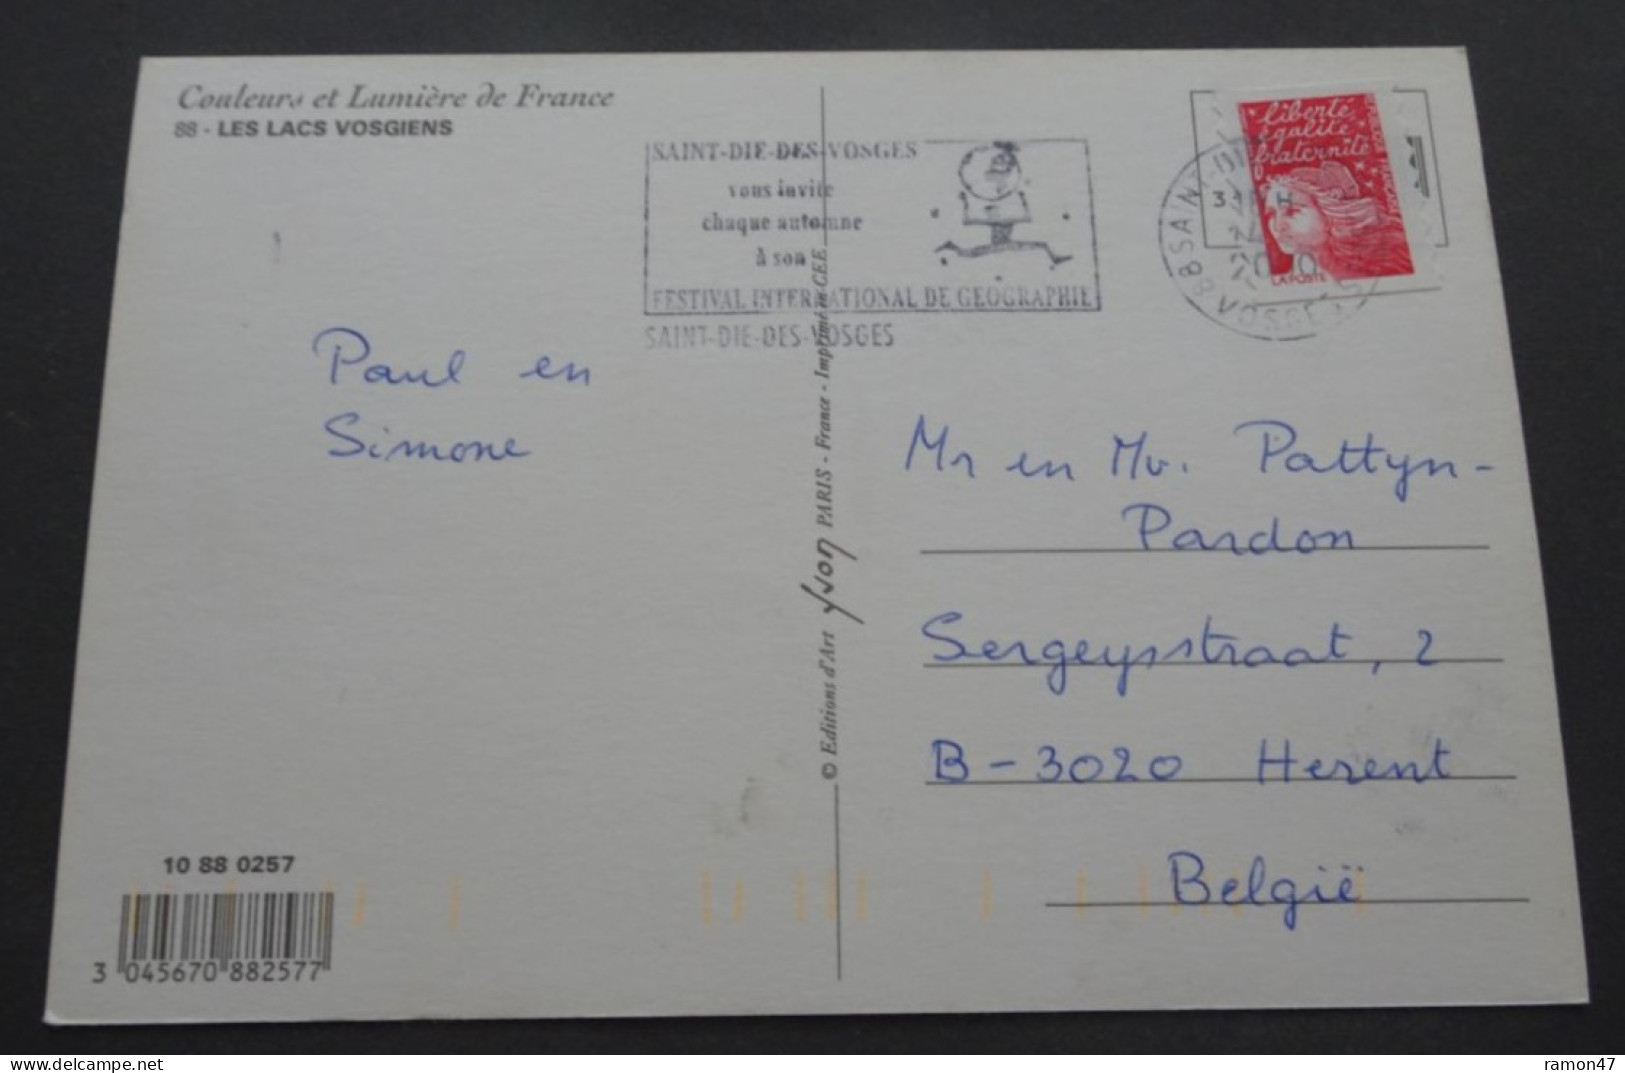 Couleurs et Lumière de France
88 - LES LACS VOSGIENS
SAINT-DIE-DES-VOSGES
vous invite
chaque automne
à son
FESTIVAL INTERNATIONAL DE GEOGRAPHIE
SAINT-DIE-DES-VOSGES
liberté
égalité
fraternité
LA POSTE
88 SAINT-DIE
VOSGES
2000
Paul en
Simone
© Editions d'Art Yvon PARIS - France - Imprimé en CEE
Mr en Mv. Pattyn-
Pardon
Sergeysstraat, 2
B-3020 Herent
België
10 88 0257
3 045670 882577
delcampe.net
ramon47